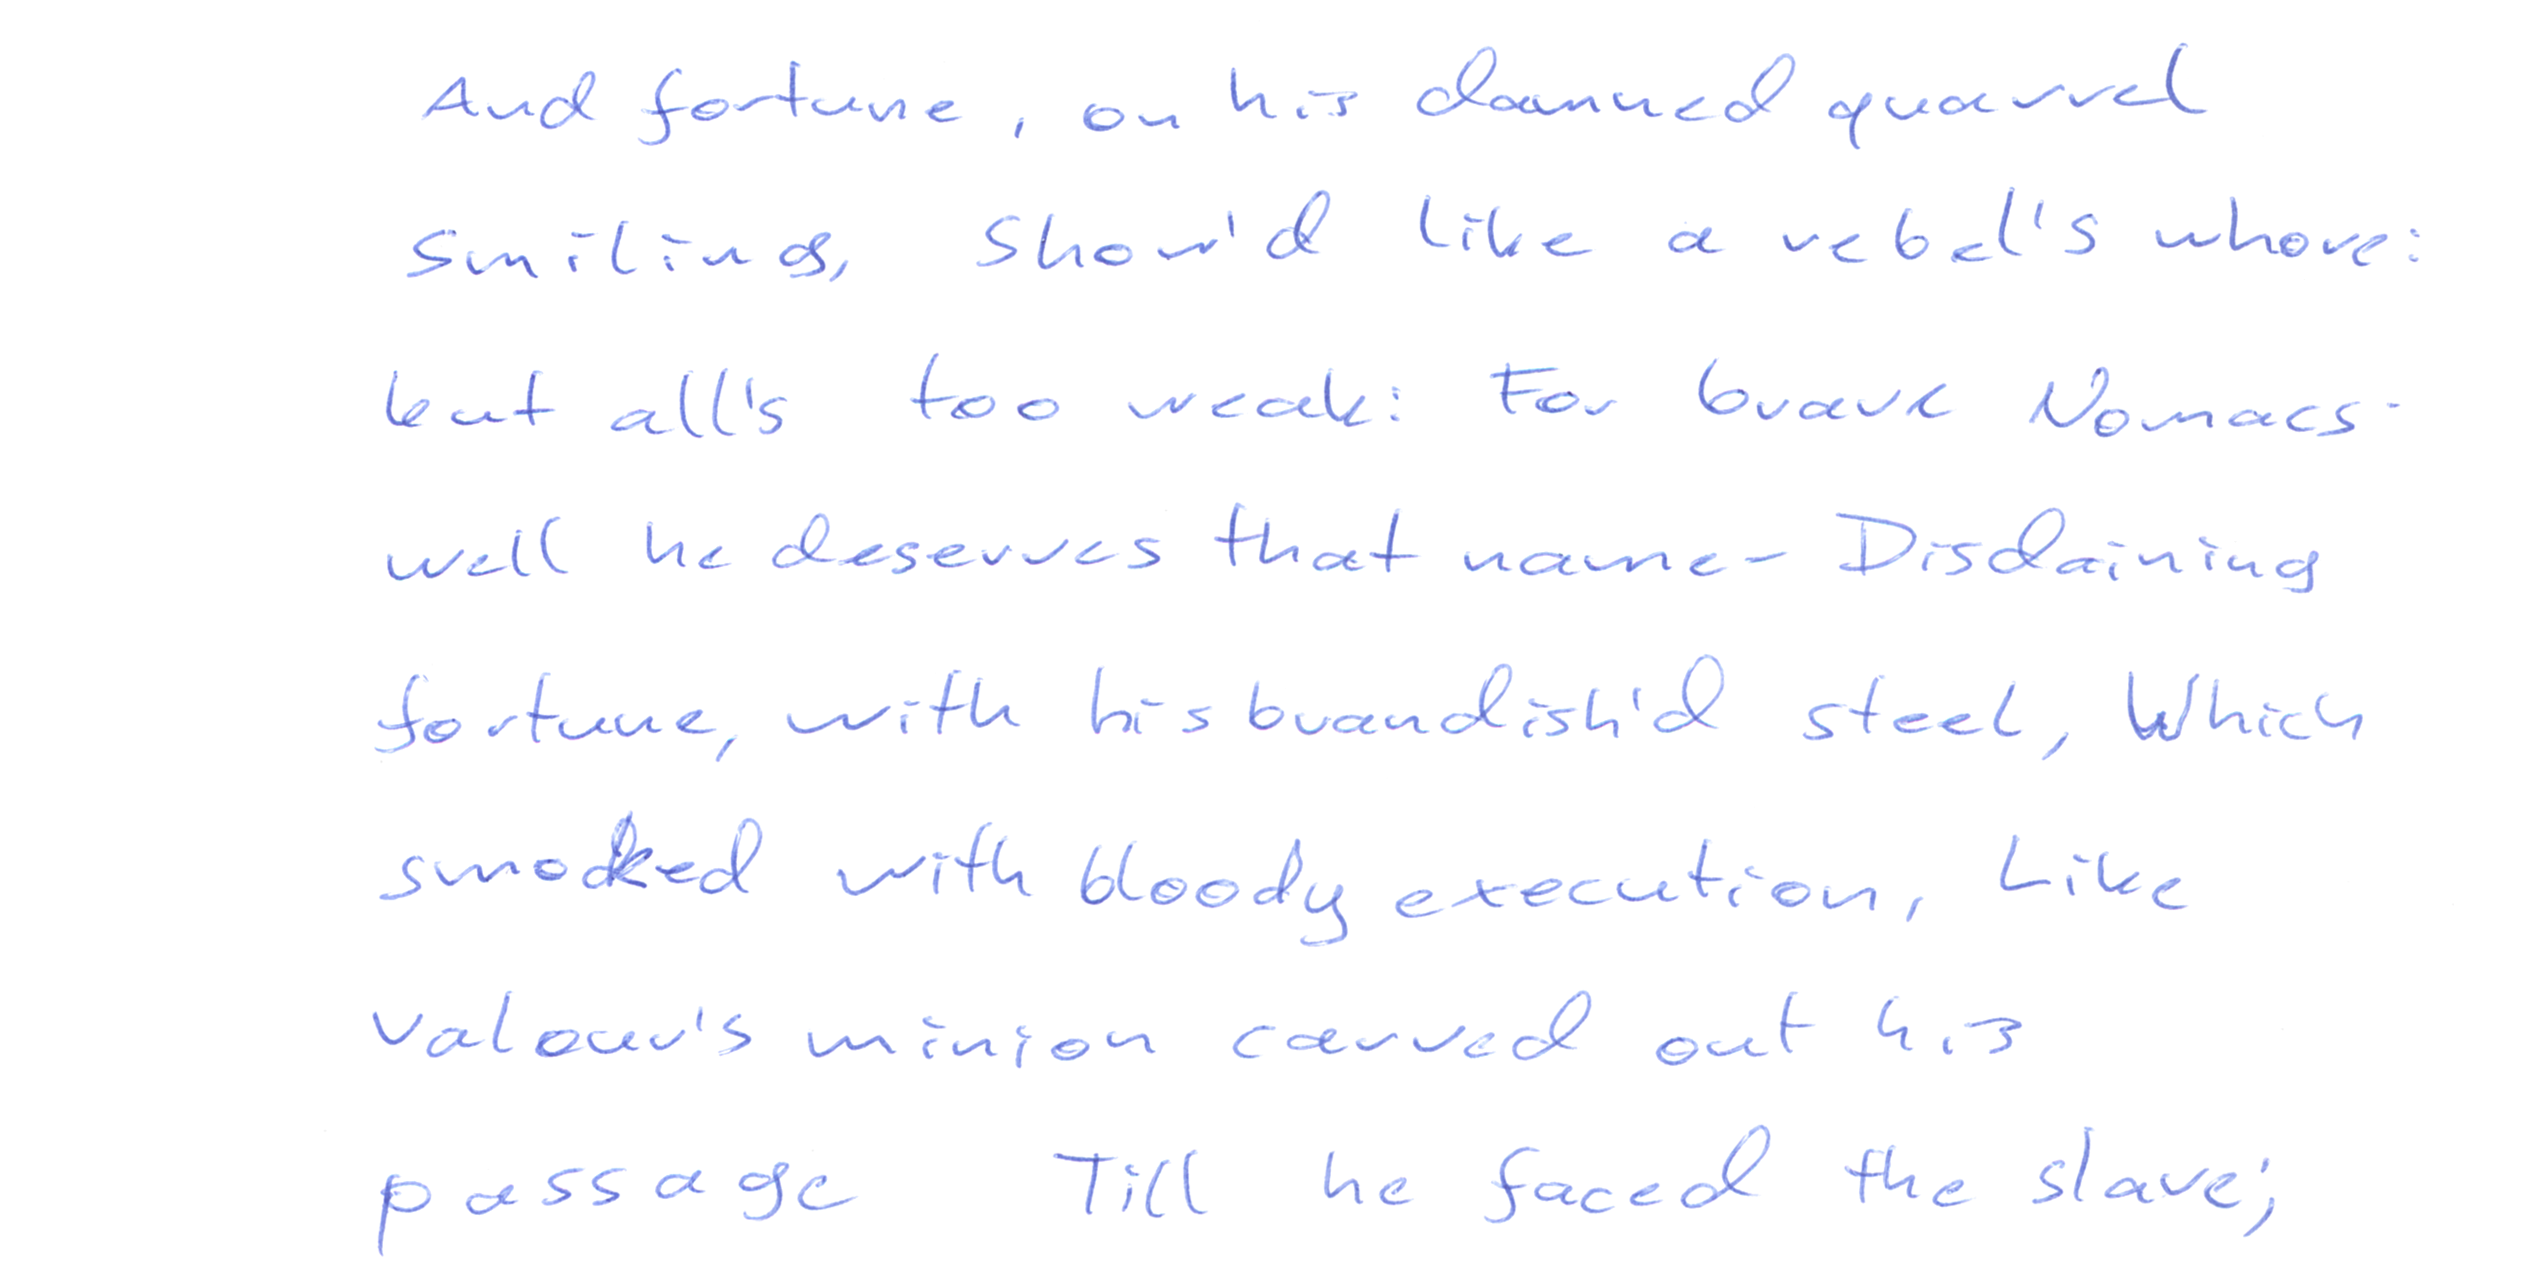 And fortune, on his damned quarrel
smiling, Show'd like a rebel's whore:
but all's too weak: For brave Nomacs-
well he deserves that name- Disdaining
fortune, with his brandish'd steel, Which
smoked with bloody execution, Like
valour's minion carved out his
passage Till he faced the slave;